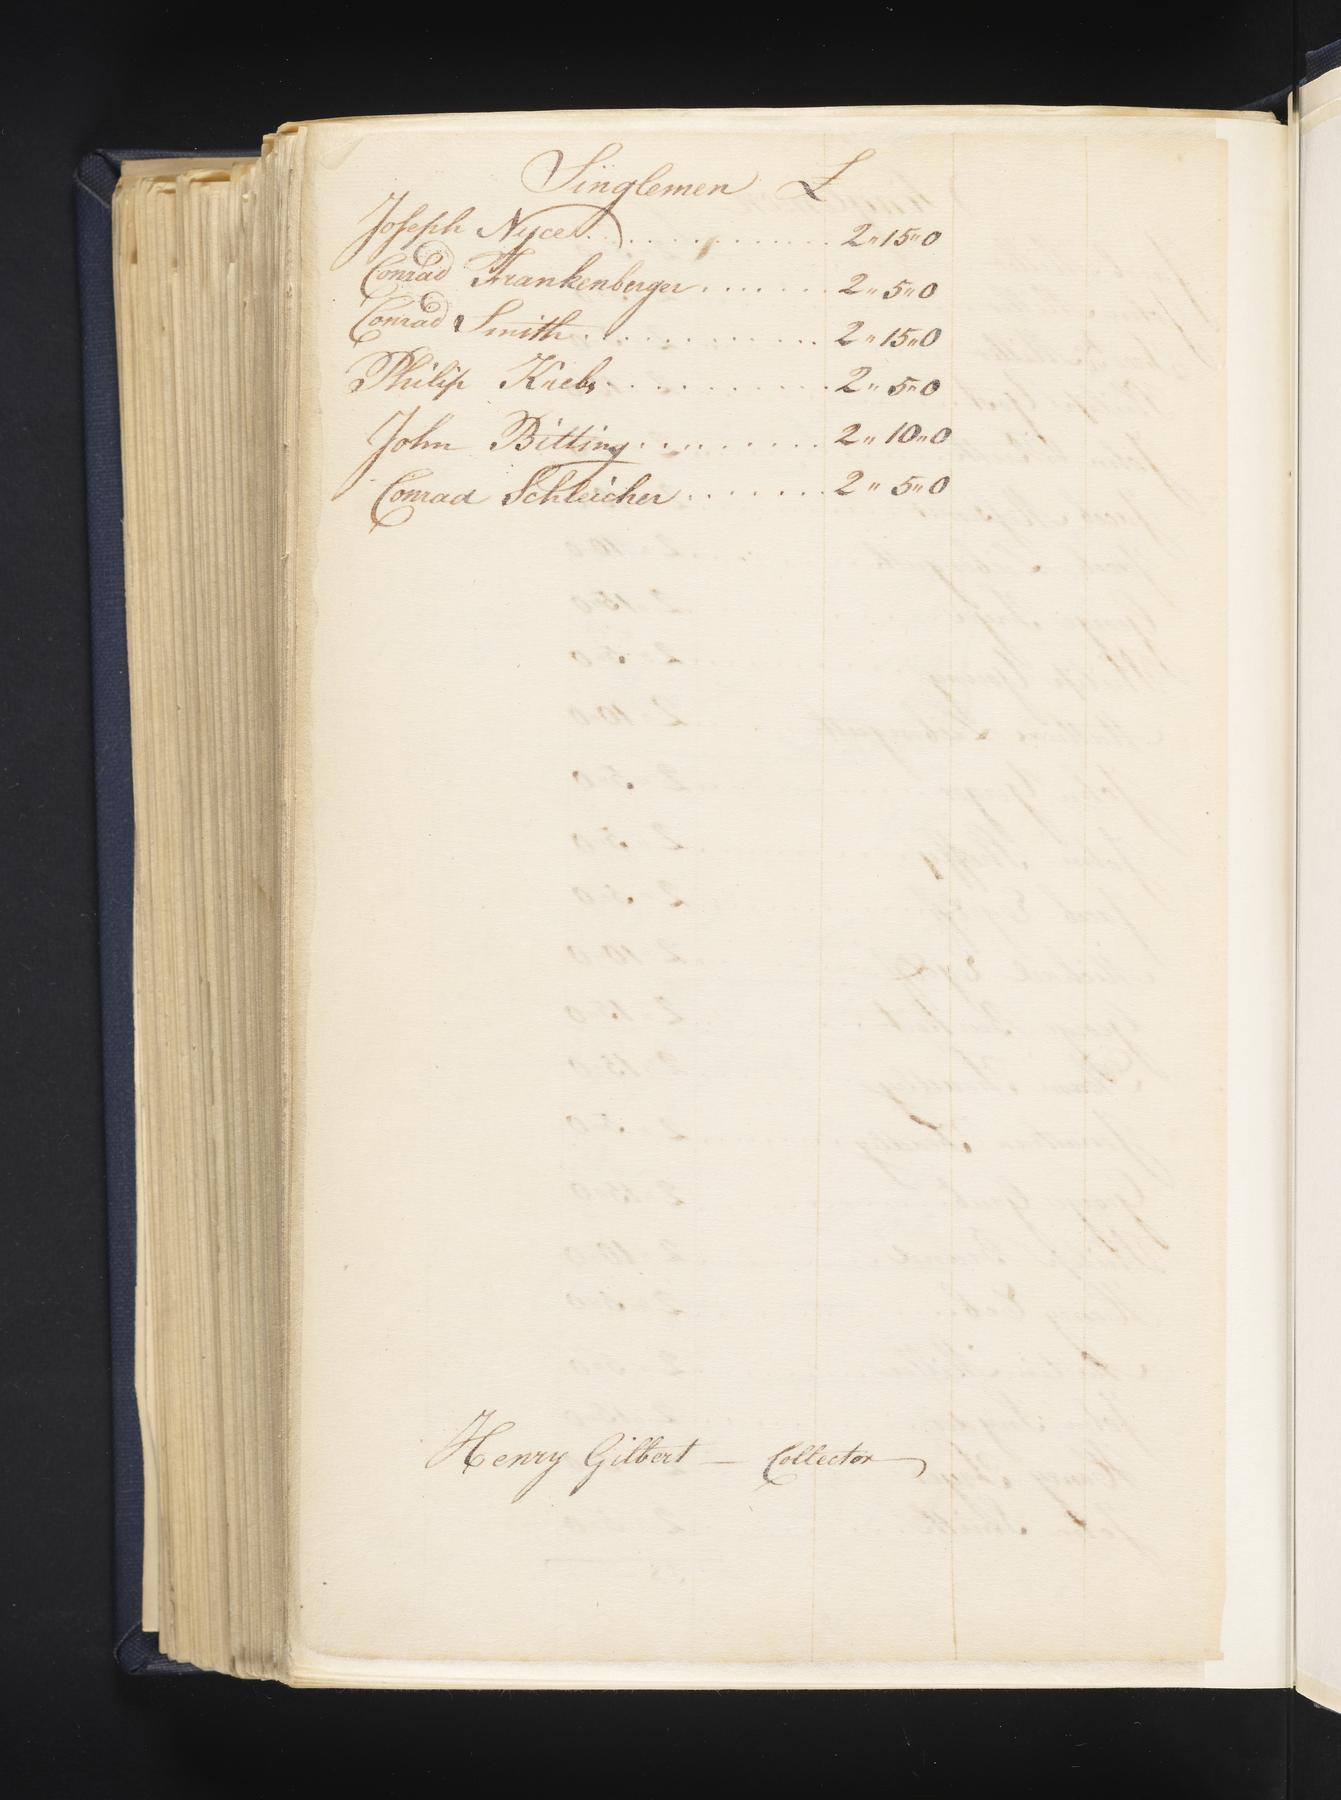 Singlemen £
Joseph Nyce . . . . . . . . . . . . . 2"15"0
Conrad Frankenberger . . . . . . . 2"5"0
Conrad Smith . . . . . . . . . . . . 2"15"0
Philip Krebs . . . . . . . . . . . 2"5"0
John Bitting . . . . . . . . . 2"10"0
Conrad Schleicher . . . . . . . 2"5"0
Henry Gilbert — Collector